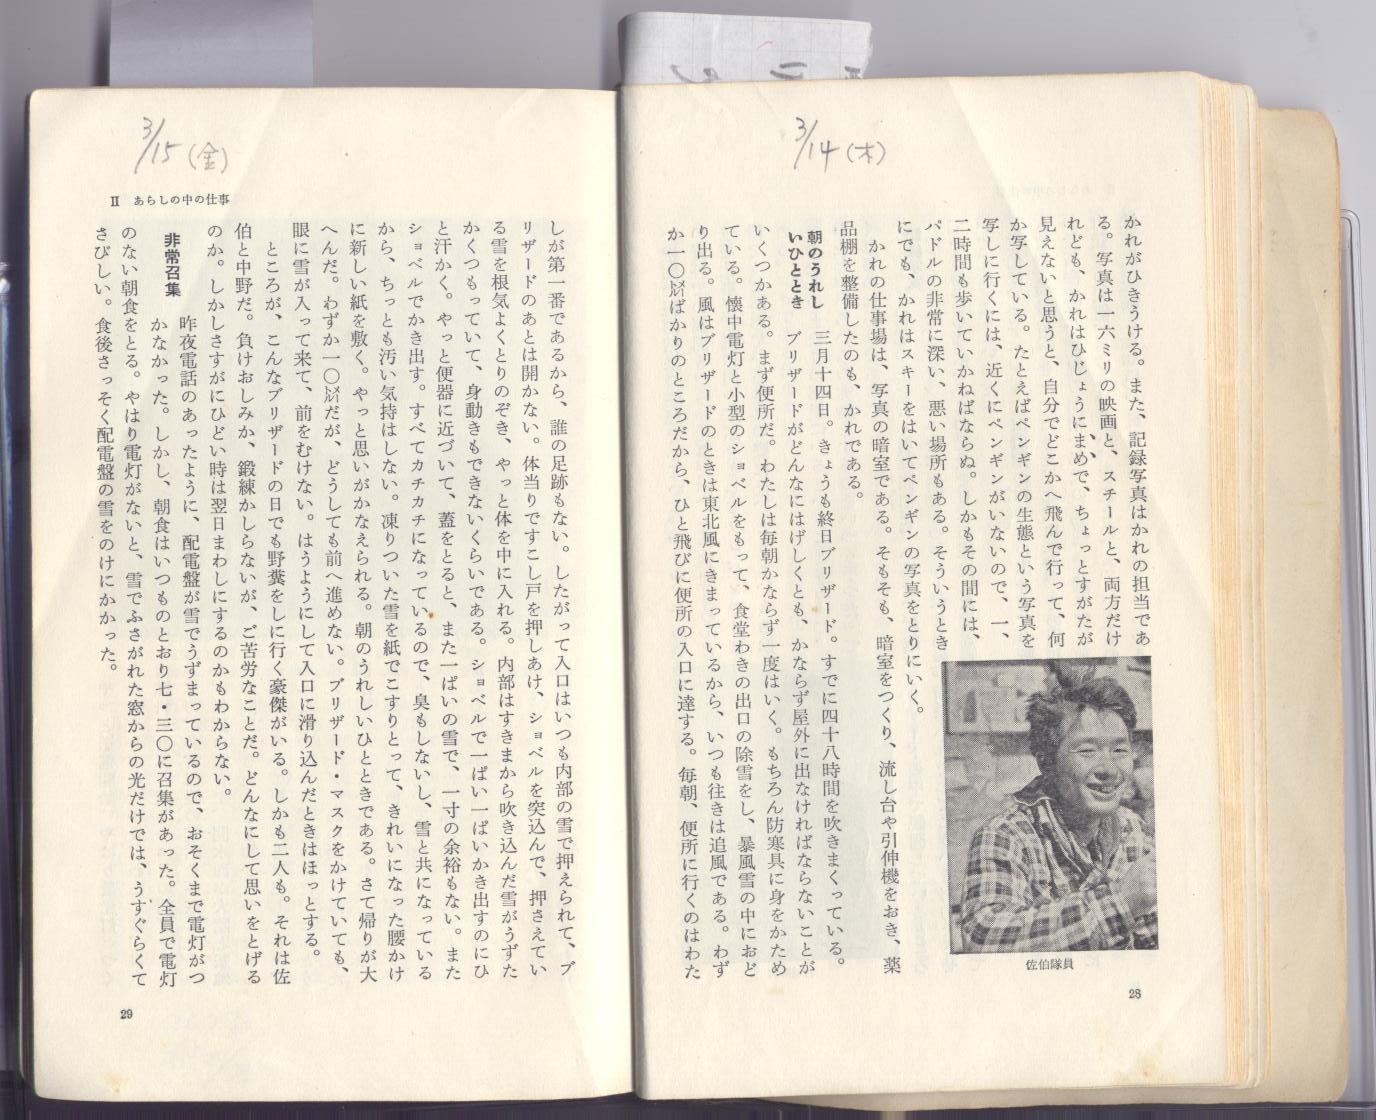 3/14(木)
かれがひきうける。また、記録写真はかれの担当であ
る。写真は一六ミリの映画と、スチールと、両方だけ
れども、かれはひじょうにまめで、ちょっとすがたが
見えないと思うと、自分でどこかへ飛んで行って、何
か写している。たとえばペンギンの生態という写真を
写しに行くには、近くにペンギンがいないので、一、
二時間も歩いていかねばならぬ。しかもその間には、
パドルの非常に深い、悪い場所もある。そういうとき
にでも、かれはスキーをはいてペンギンの写真をとりにいく。
かれの仕事場は、写真の暗室である。そもそも、暗室をつくり、流し台や引伸機をおき、薬
品棚を整備したのも、かれである。
朝のうれし
いひととき
三月十四日。きょうも終日ブリザード。すでに四十八時間を吹きまくっている。
ブリザードがどんなにはげしくとも、かならず屋外に出なければならないことが
いくつかある。まず便所だ。わたしは毎朝かならず一度はいく。もちろん防寒具に身をかため
ている。懐中電灯と小型のショベルをもって、食堂わきの出口の除雪をし、暴風雪の中におど
り出る。風はブリザードのときは東北風にきまっているから、いつも往きは追風である。わず
か一〇㍍ばかりのところだから、ひと飛びに便所の入口に達する。毎朝、便所に行くのはわた
佐伯隊員
28
3/15(金)
II あらしの中の仕事
しが第一番であるから、誰の足跡もない。したがって入口はいつも内部の雪で押えられて、ブ
リザードのあとは開かない。体当りですこし戸を押しあけ、ショベルを突込んで、押さえてい
る雪を根気よくとりのぞき、やっと体を中に入れる。内部はすきまから吹き込んだ雪がうずた
かくつもっていて、身動きもできないくらいである。ショベルで一ぱい一ぱいかき出すのにひ
と汗かく。やっと便器に近づいて、蓋をとると、また一ぱいの雪で、一寸の余裕もない。また
ショベルでかき出す。すべてカチカチになっているので、臭もしないし、雪と共になっている
から、ちっとも汚い気持はしない。凍りついた雪を紙でこすりとって、きれいになった腰かけ
に新しい紙を敷く。やっと思いがかなえられる。朝のうれしいひとときである。さて帰りが大
へんだ。わずか一〇㍍だが、どうしても前へ進めない。ブリザード・マスクをかけていても、
眼に雪が入って来て、前をむけない。はうようにして入口に滑り込んだときはほっとする。
ところが、こんなブリザードの日でも野糞をしに行く豪傑がいる。しかも二人も。それは佐
伯と中野だ。負けおしみか、鍛練かしらないが、ご苦労なことだ。どんなにして思いをとげる
のか。しかしさすがにひどい時は翌日まわしにするのかもわからない。
非常召集
昨夜電話のあったように、配電盤が雪でうずまっているので、おそくまで電灯がつ
かなかった。しかし、朝食はいつものとおり七・三〇に召集があった。全員で電灯
のない朝食をとる。やはり電灯がないと、雪でふさがれた窓からの光だけでは、うすぐらくて
さびしい。食後さっそく配電盤の雪をのけにかかった。
29